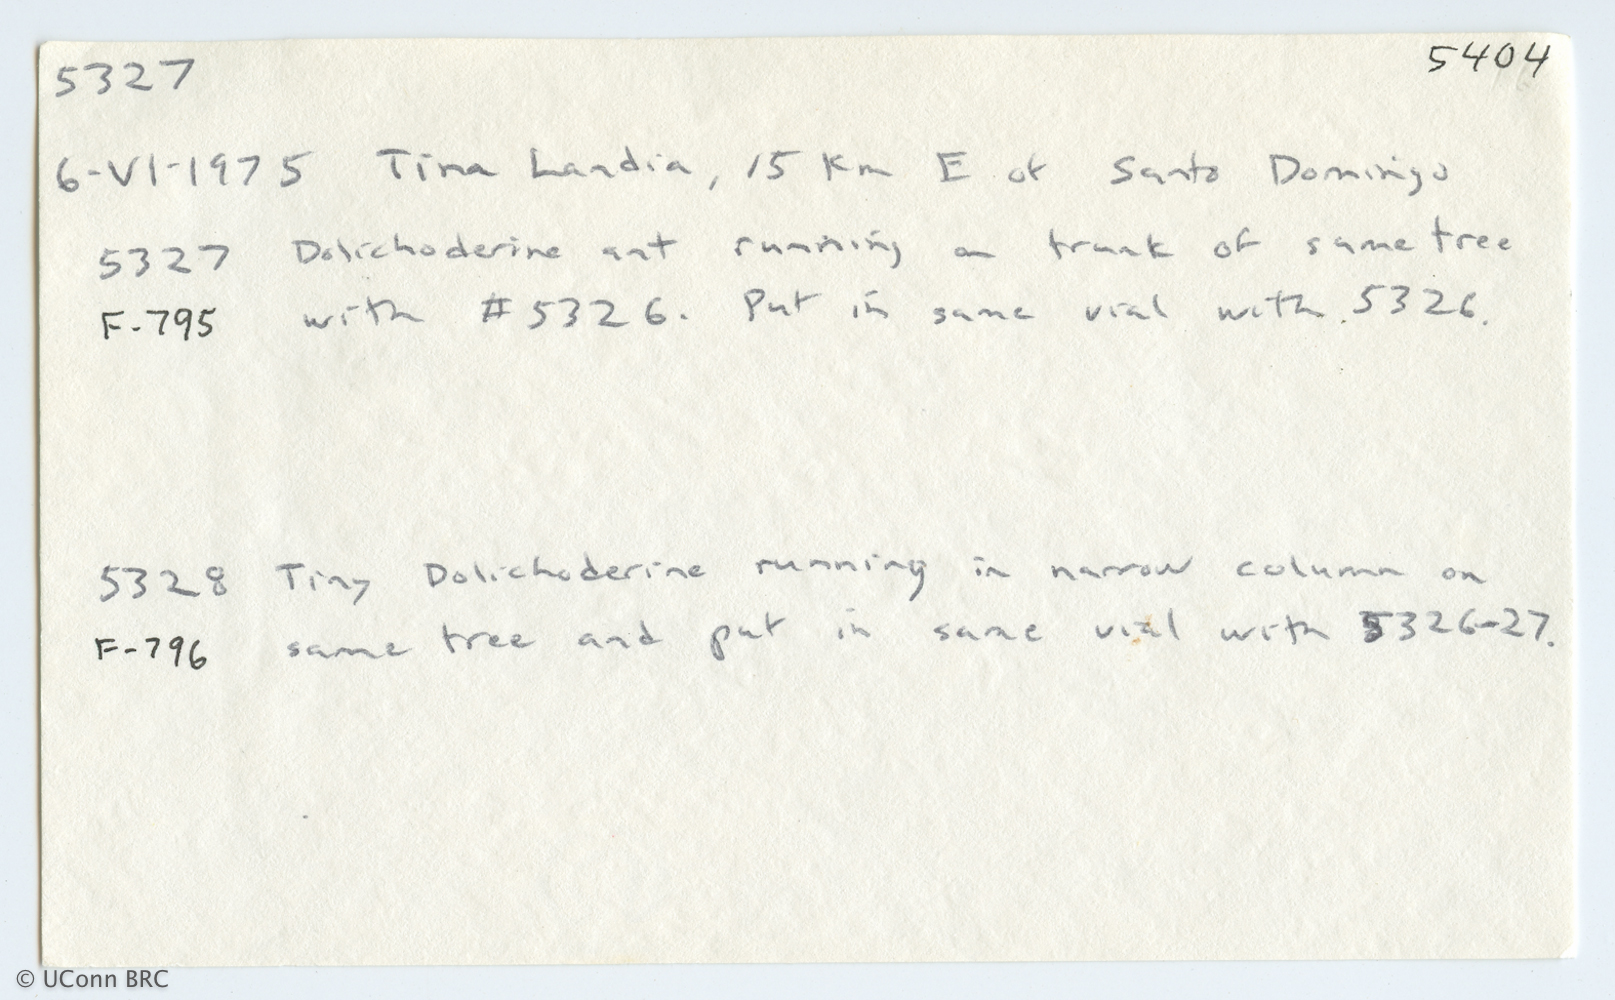 5327 5404
6-VI-1975 Tina Landia, 15 Km E of Santo Domingo
5327 Dolichoderine ant running on trunk of same tree
F-795 with #5326. Put in same vial with 5326.
5328 Tiny Dolichoderine running in narrow column on
F-796 same tree and put in same vial with 5326-27.
© UConn BRC